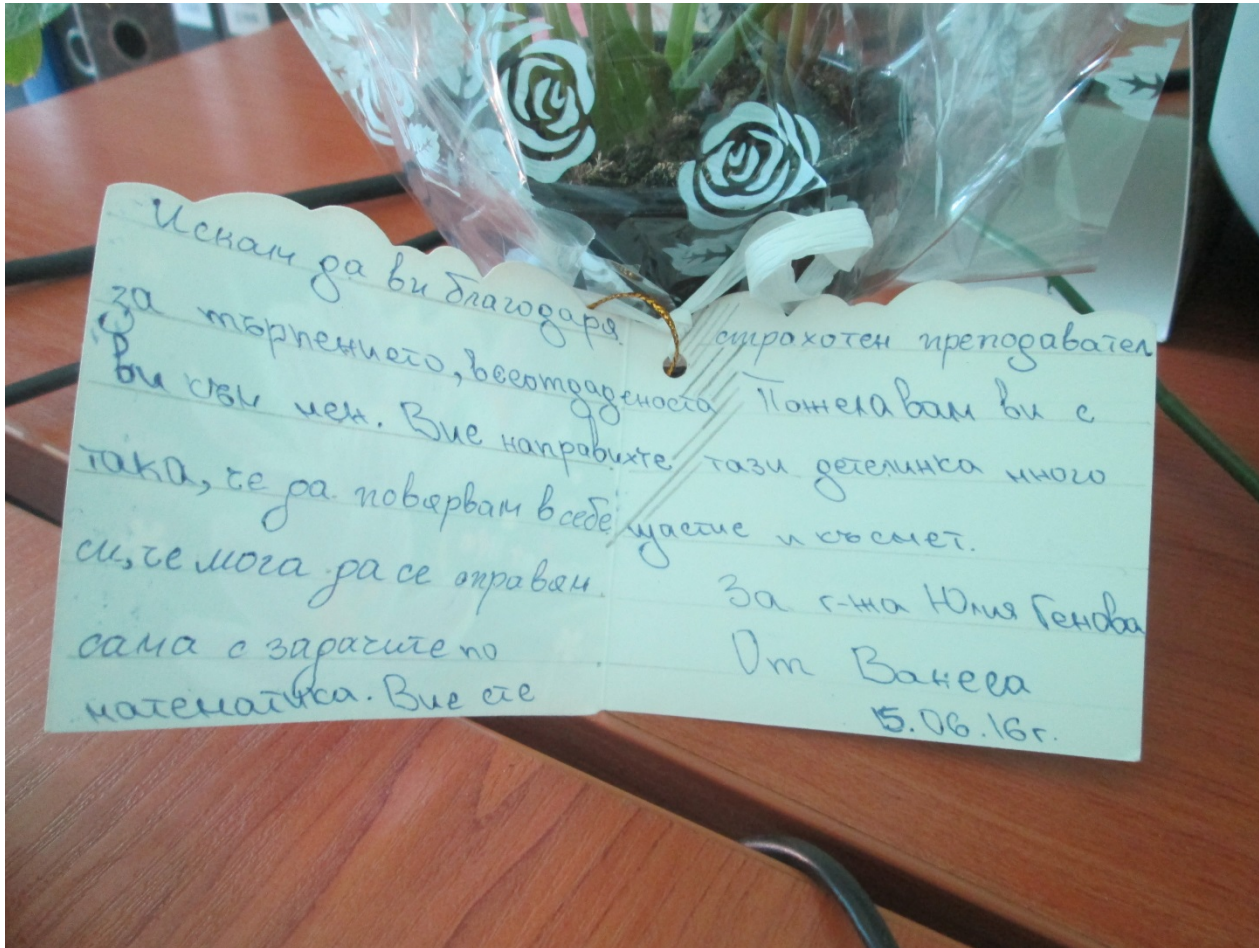 Искам да ви благодаря
за търпението, всеотдаденоста
ви към мен. Вие направихте
така, че да повярвам в себе
си, че мога да се оправям
сама с задачите по
математика. Вие сте
страхотен преподавател
Пожелавам ви с
тази детелинка много
щастие и късмет.
За г-жа Юлия Генова
От Ванеса
15.06.16г.